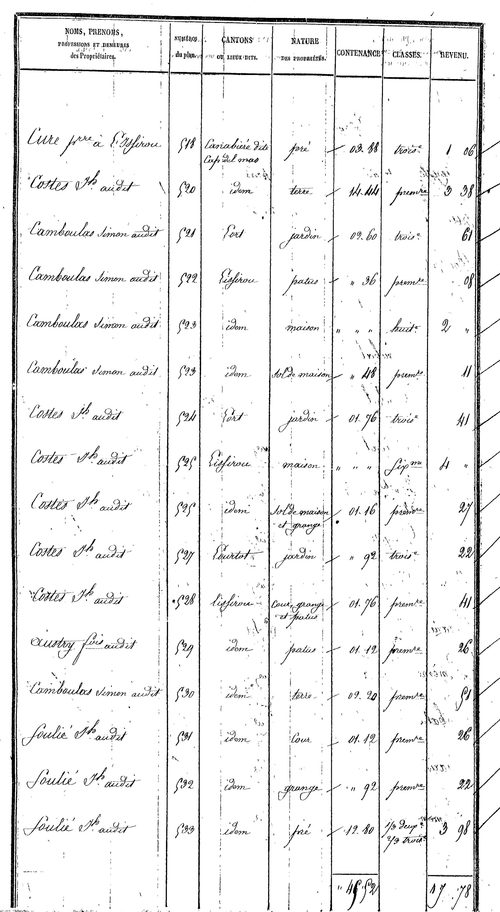 NOMS, PRENOMS, PROFESSIONS ET DEMEURES des Propriétaires. | NUMÉROS du plan. | CANTONS OU LIEUX-DITS. | NATURE DES PROPRIÉTÉS. | CONTENANCE | CLASSES. | REVENU.
Cure prre à 518 Canabière dite Cap del mas pré 03.88 trois.e 1 06
Costes Jh audit 520 idem terre 14.44 premre 3 38
Camboulas Simon audit 521 Lort jardin 02.60 trois.e 61
Camboulas Simon audit 522 Eissirou patus " 36 premre 08
Camboulas Simon audit 523 idem maison " " " huit.e 2 "
Camboulas Simon audit 523 idem sol de maison " 48 premre 11
Costes Jh audit 524 Lort jardin 01.76 trois.e 41
Costes Jh audit 525 Eissirou maison " " " sixme 4 "
Costes Jh audit 525 idem sol de maison et grange 01.16 premre 27
Costes Jh audit 527 jardin " 92 trois.e 22
Costes Jh audit 528 Eissirou cour, grange et patus 01.76 premre 41
Austry fois audit 529 idem patus 01.12 premre 26
Camboulas Simon audit 530 idem terre 02.20 premre 51
Soulié Jh audit 531 idem cour 01.12 premre 26
Soulié Jh audit 532 idem grange " 92 premre 22
Soulié Jh audit 533 idem pré 12.80 1/3 deux.e 2/3 trois.e 3 98
17 78